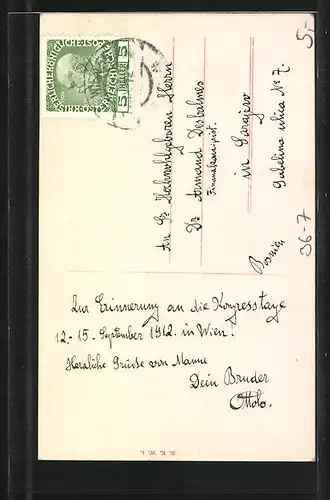 5,-
36-7
An Sr Hochwohlgeboren Herrn
Dr Armand Desbalmes
Finanzkonzipist.
in Sarajevo
Gabelina ulica No 7.
Bosnien
Zur Erinnerung an die Kongresstage
12.-15. September 1912. in Wien!
Herzliche Grüsse von Mama
Dein Bruder
Ottolo.
B. K. W. I.
5 5